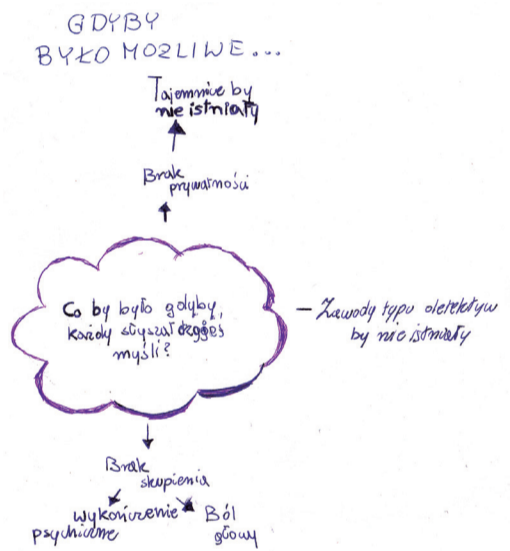 GDYBY
BYŁO MOŻLIWE...
Tajemnice by
nie istniały
Brak
prywatności
Co by było gdyby,
każdy słyszał czyjeś
myśli?
– Zawody typu detektyw
by nie istniały
Brak
skupienia
wykończenie
psychiczne
Ból
głowy